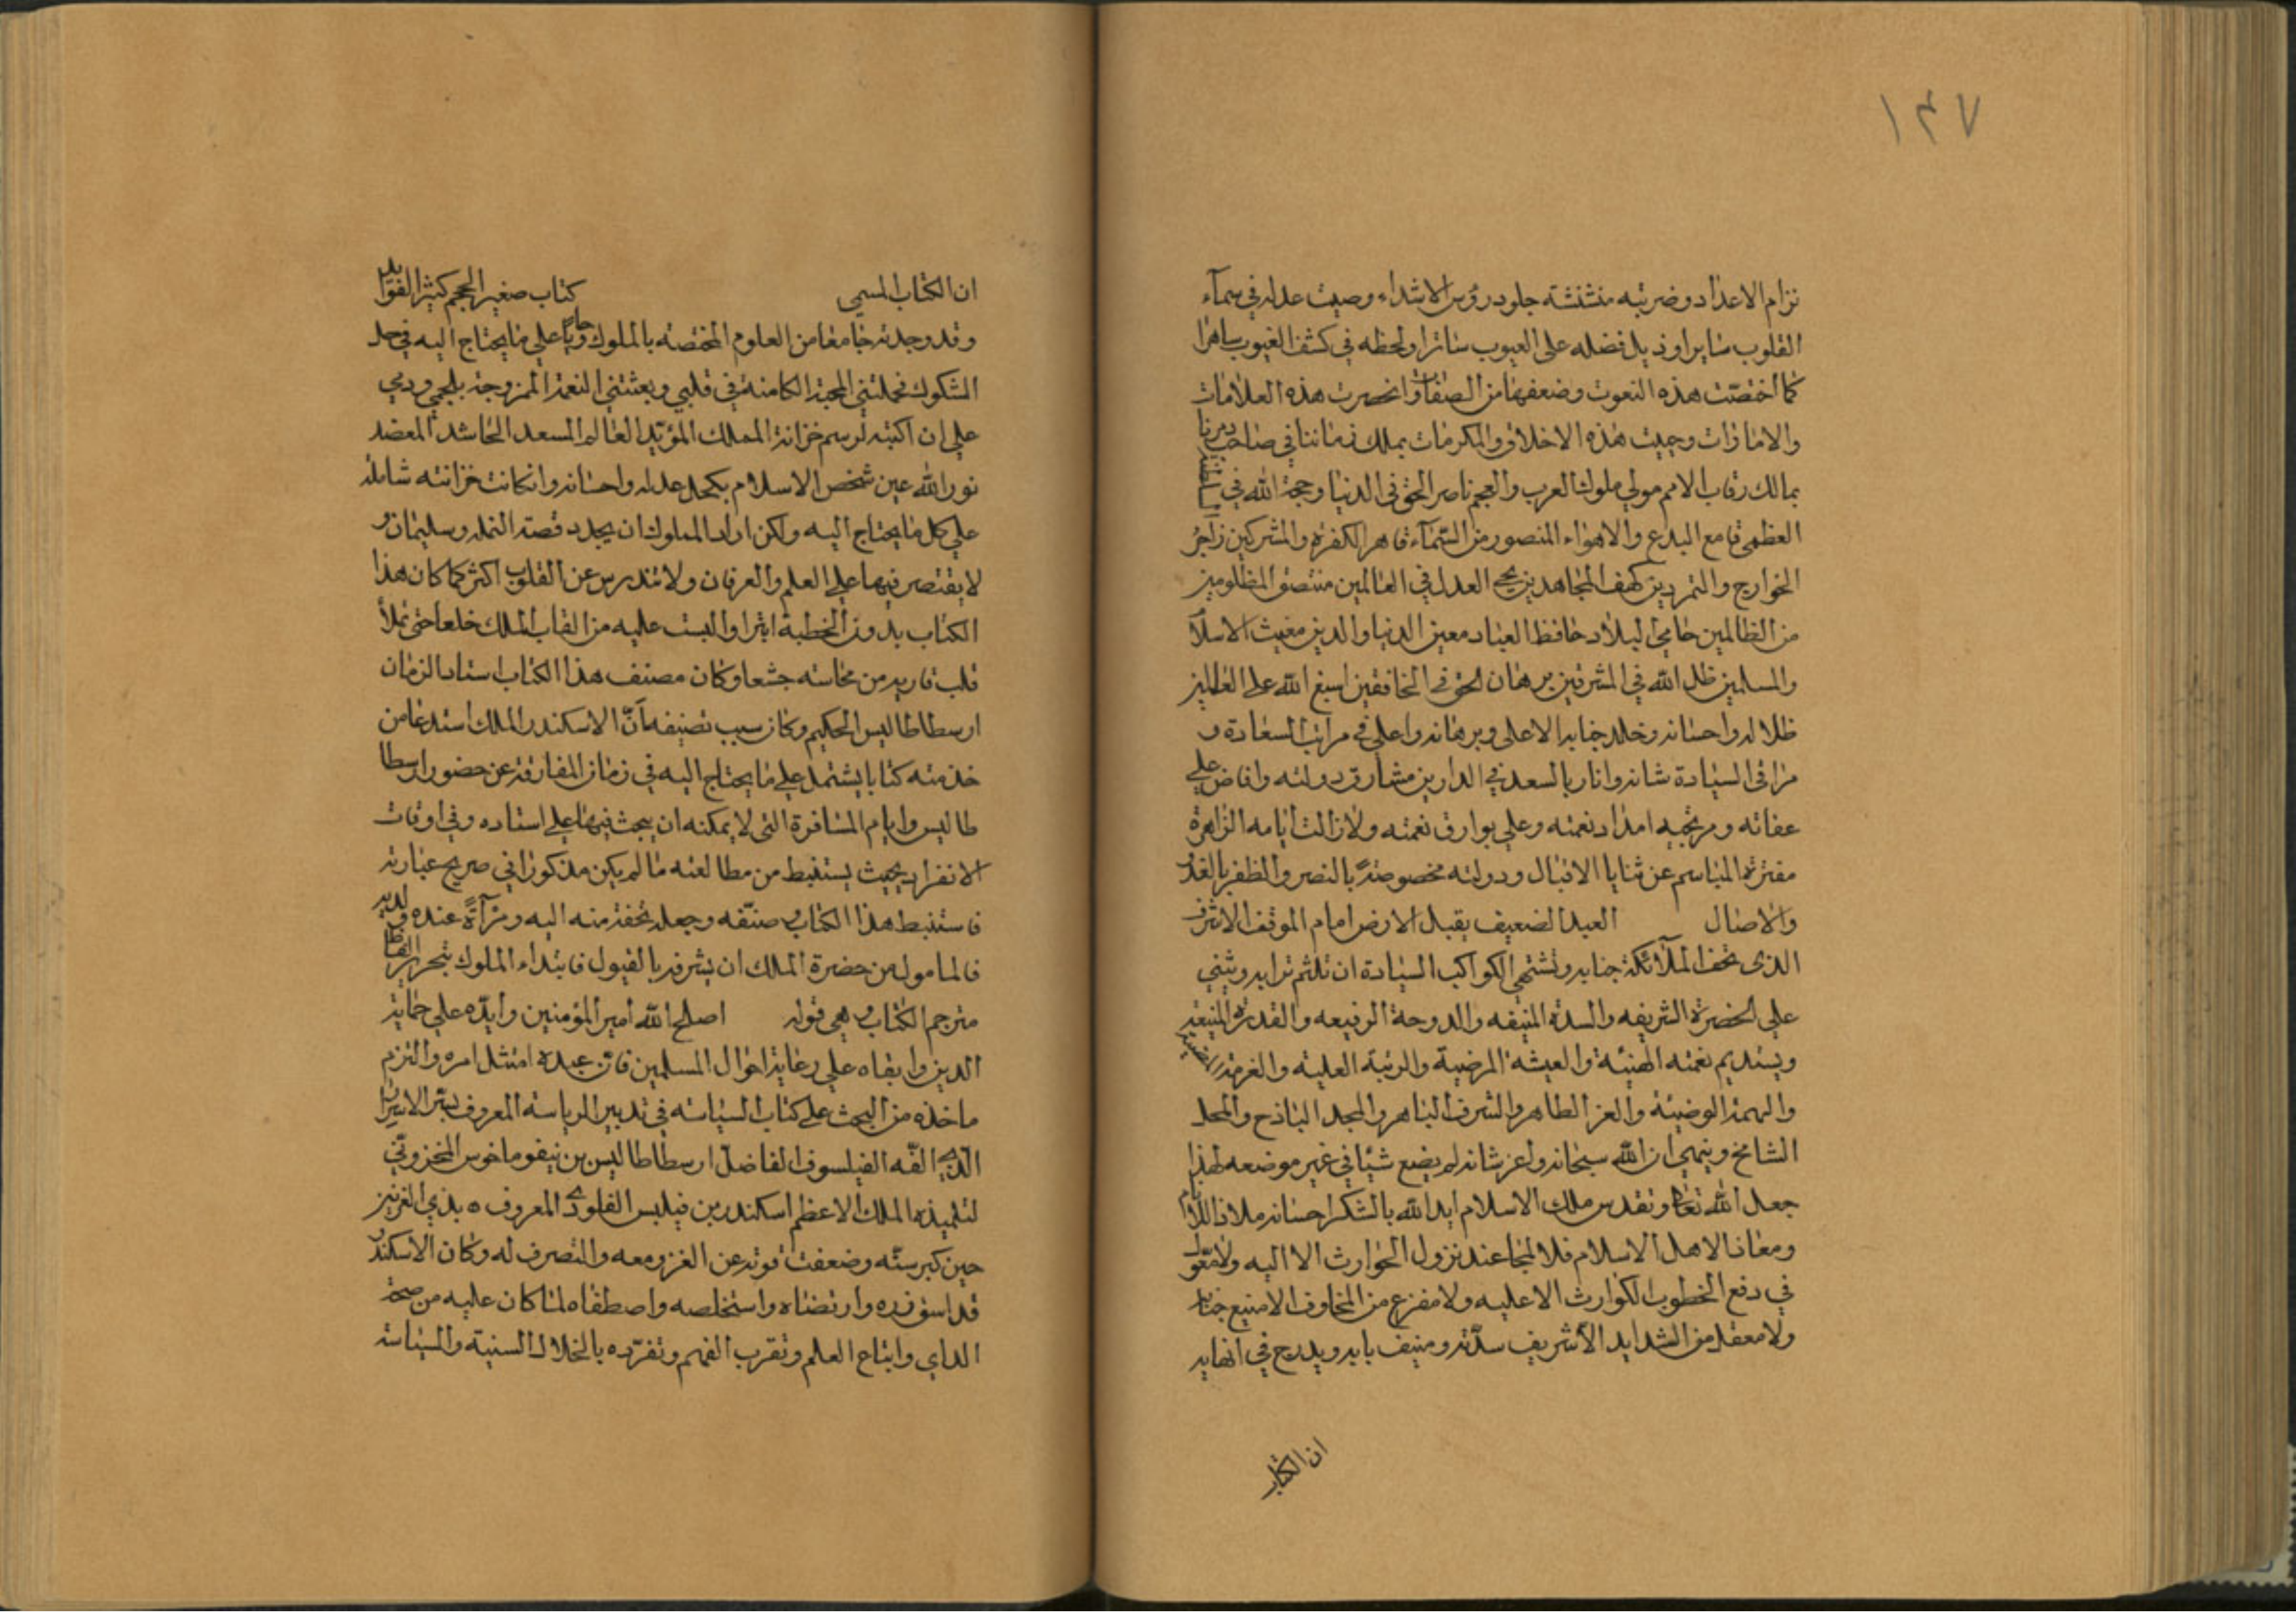 ١٤٧
نزام الاعداد وضربته منشئشة جلود رؤس الاشداء وصيت عدله في سمآء
القلوب سايرا وذيل فضله على العيوب ساترا ولحظه في كشف الغيوب ساهرا
كما اختصت هذه النعوت وضعفها من الصفات وانحصرت هذه العلامات
والامارات وجبيت هذه الاخلاق والمكرمات بملك زماننا في صاحب دهرنا
مالك رقاب الامم مولى ملوك العرب والعجم ناصر الحق في الدنيا وحجة الله في
العظمى قامع البدع والاهواء المنصور من السمآء قاهر الكفرة والمشركين زاجر
الخوارج والتمردين كهف المجاهدين محي العدل في العالمين منتصف المظلومين
من الظالمين حامي البلاد حافظ العباد معين الدنيا والدين مغيث الاسلام
والمسلمين ظل الله في المشرقين برهان الحق في الخافقين اسبغ الله على العالمين
ظلاله واحسانه وخلد جنابه الاعلى وبرهانه واعلى في مراتب السعادة و
مراقي السيادة شانه وانار بالسعد في الدارين مشارق دولته وافاض على
عفاته ومرتجيه امداد نعمته وعلى بوارق نعمته ولا زالت ايامه الزاهرة
مفترة المباسم عن ثنايا الاقبال ودولته مخصوصة بالنصر والظفر بالغدو
والاصال العبد الضعيف يقبل الارض امام الموقف الاشرف
الذى تحف الملآئكة جنابه وتشتهى الكواكب السيادة ان تلثم ترابه ويثني
على الحضرة الشريفه والسدة المنيفه والدوحة الرفيعه والقدرة المنيعه
ويستديم نعمته الهنيئة والعيشة المرضية والرتبة العلية والغرة
والهمة الوضيئة والعز الطاهر والشرف الباهر والمجد الباذخ والمحل
الشامخ وينهى ان الله سبحانه واعز شانه لم يضع شيئا في غير موضعه لهذا
جعل الله تعالى وتقدس ملك الاسلام ايد الله بالشكر احسانه ملاذا للانام
ومعاذا لاهل الاسلام فلا ملجا عند نزول الحوادث الا اليه ولا معول
في دفع الخطوب الكوارث الا عليه ولا مفزع من المخاوف الا منيع جنابه
ولا معقل من الشدايد الا شريف سدته ومنيف بابه ويدرج في انهايه
ان الكتاب
ان الكتاب المسمى كتاب صغير الحجم كثير الفوايد
وقد وجدته جامعا من العلوم المختصة بالملوك حاويا على ما يحتاج اليه في حل
الشكوك فحملتني المحبة الكامنة في قلبي وبعثتني النعمة الممزوجة بلحمي ودمي
على ان اكتبه لرسم خزانة الملك المؤيد العالم المسعد الحاشد المعضد
نور الله عين شخص الاسلام بكحل عدله واحسانه وان كانت خزانته شاملة
على كل ما يحتاج اليه ولكن اراد المملوك ان يجدد قصة النمل وسليمان و
لا يقتصر فيها على العلم والعرفان ولا تندرس عن القلوب اكثر كما كان هذا
الكتاب بدون الخطبة ابترا والبست عليه من القاب الملك خلعا حتى تملأ
قلب قاريه من محاسنه جشعا وكان مصنف هذا الكتاب استاد الزمان
ارسطاطاليس الحكيم وكان سبب تصنيفه أنّ الاسكندر الملك استدعا من
خدمته كتابا يشتمل على ما يحتاج اليه في زمان المفارقة عن حضور ارسطا
طاليس وايام المسافرة التى لا يمكنه ان يبحث فيها على استاده وفي اوقات
الانفراد بحيث يستنبط من مطالعته ما لم يكن مذكورا في صريح عبارته
فاستنبط هذا الكتاب وصنّفه وجعله تحفة منه اليه ومرآةً عنده ولديه
فالمامول من حضرة الملك ان يشرفه بالقبول فابتداء المملوك بتحرير الفاظ
مترجم الكتاب وهي قوله اصلح الله امير المؤمنين وايّده على حماية
الدين وابقاه على رعاية احوال المسلمين فانّ عبده امتثل امره والتزم
ما حذه من البحث على كتاب السياسة في تدبير الرياسة المعروف بسر الاسرار
الّذى الّفه الفيلسوف الفاضل ارسطاطاليس بن نيقوماخوس المخزوني
لتلميذه الملك الاعظم اسكندر بن فيلبس القلوذى المعروف ه بذي القرنين
حين كبر سنّه وضعفت قوته عن الغزو معه والتصرف له وكان الاسكندر
قد استوزره وارتضاه واستخلصه واصطفاه لما كان عليه من صحة
الداي واتباع العلم وتقرب الفهم وتفرّده بالخلال السنية والسياسة